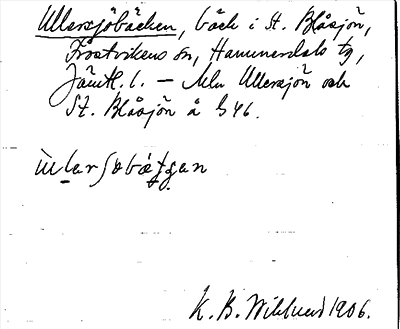 Ullersjöbäcken, bäck i St. Blåsjön,
Frostvikens sn, Hammerdals tg,
Jämtl. l. — Mln Ullersjön och
St. Blåsjön å G 46.
ùlarʃobätjan
K. B. Wiklund 1906.